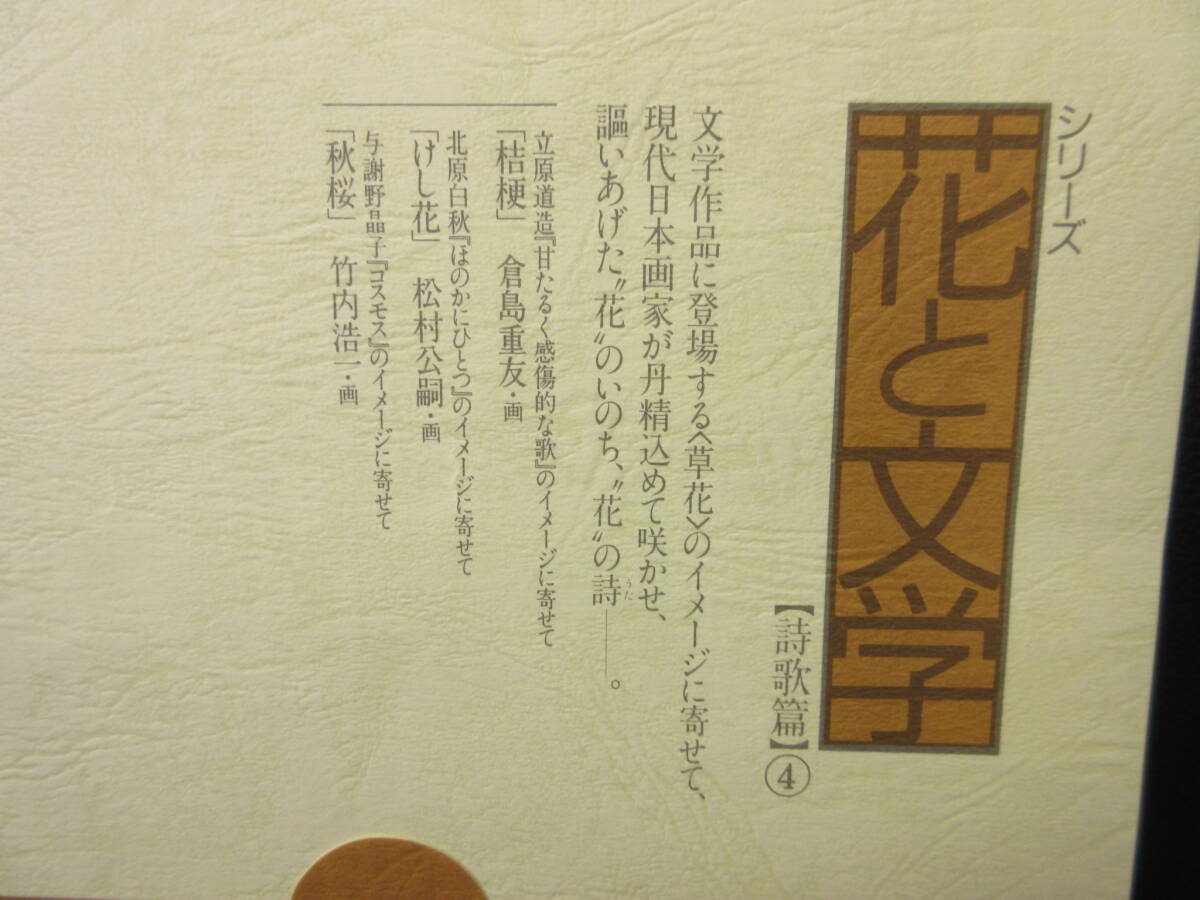 シリーズ
花と文学
【詩歌篇】④
文学作品に登場する〈草花〉のイメージに寄せて、
現代日本画家が丹精込めて咲かせ、
謳いあげた〝花〟のいのち、〝花〟の詩――。
うた
立原道造『甘たるく感傷的な歌』のイメージに寄せて
「桔梗」 倉島重友・画
北原白秋『ほのかにひとつ』のイメージに寄せて
「けし花」 松村公嗣・画
与謝野晶子『コスモス』のイメージに寄せて
「秋桜」 竹内浩一・画